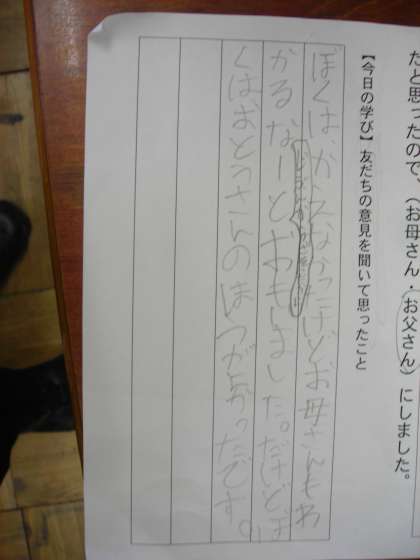 だと思ったので、（お母さん・お父さん）にしました。
【今日の学び】友だちの意見を聞いて思ったこと
ぼくは、かえなかったけどお母さんもわ
かるなーとおもいました。だけどぼ
くはおとうさんのほうがよかったです。